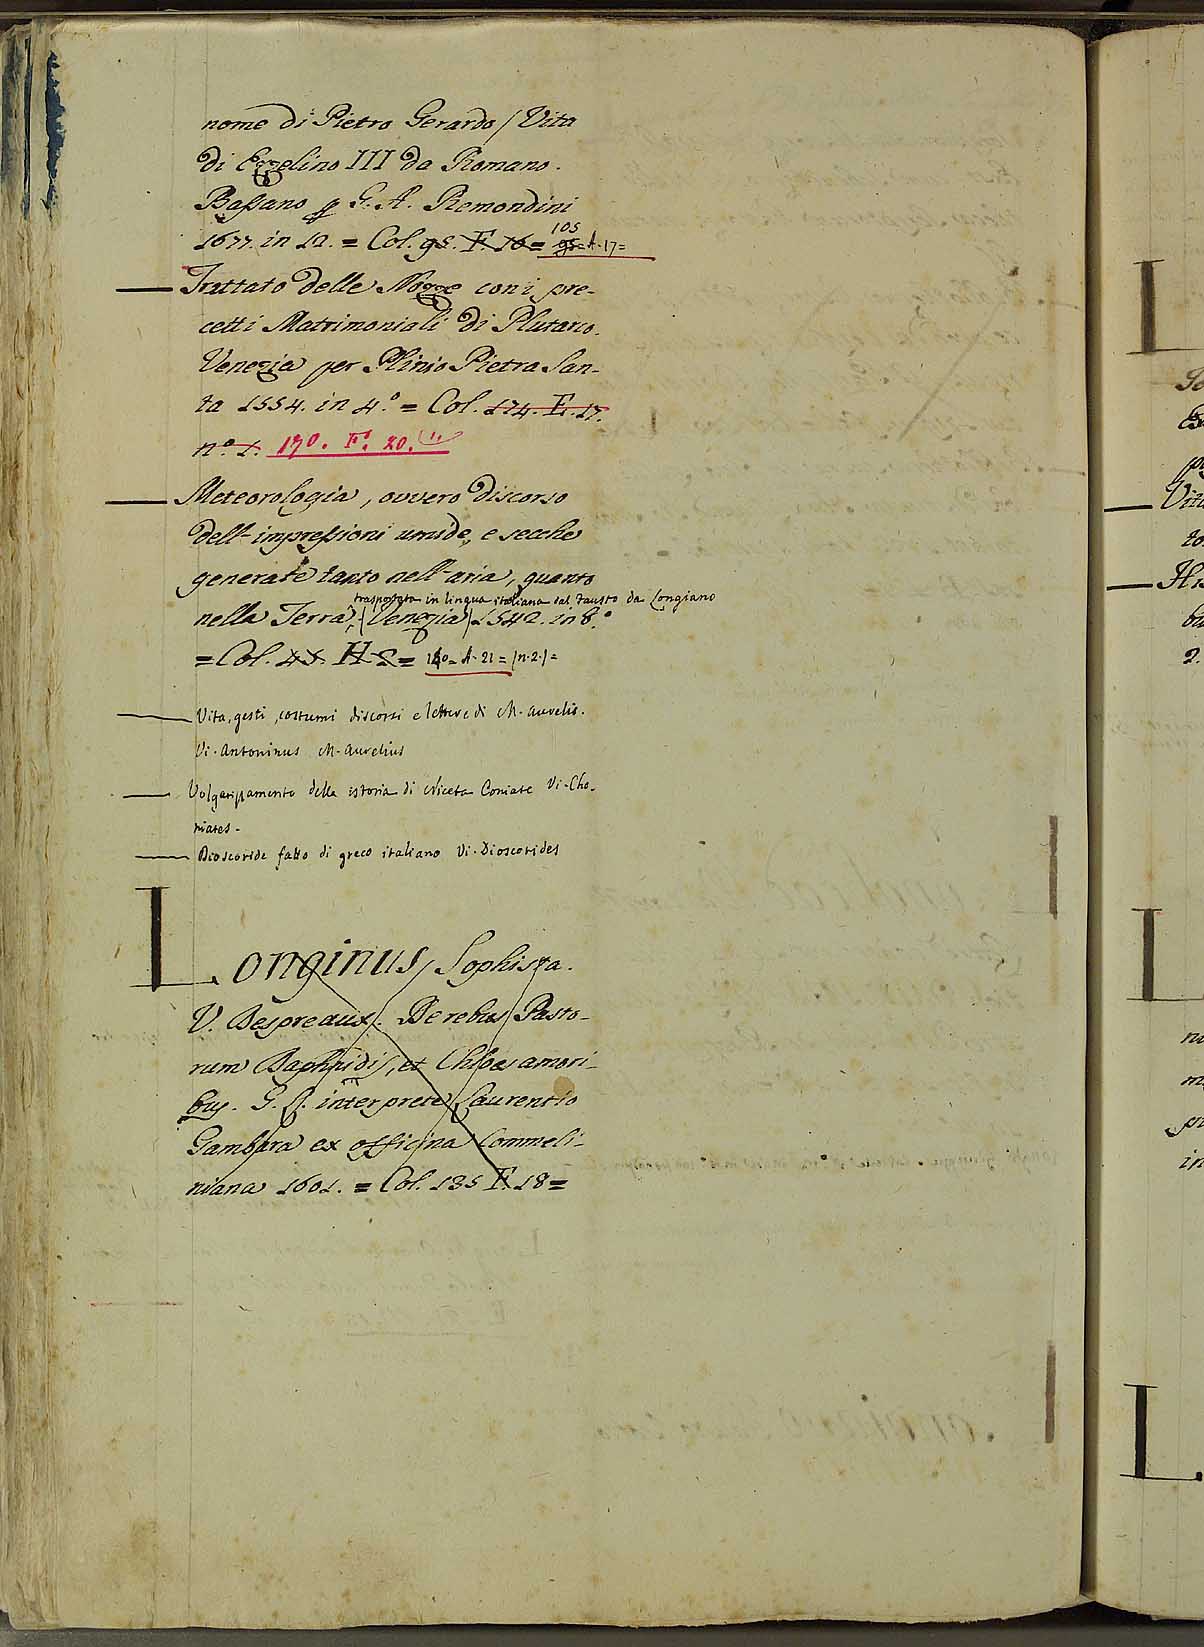 nome di Pietro Gerardo / Vita
di Ezzelino III da Romano.
Baſsano p G. A. Remondini
105
1677. in 12. = Col. 95. F. 16 = 95 = A. 17 =
Trattato delle Nozze con i pre-
cetti Matrimoniali di Plutarco.
Venezia per Plinio Pietra San-
ta 1554. in 4.° = Col. 174. E. 17.
n.° 1. 170. F. 20. (1.
Meteorologia, ovvero discorso
dell'impreſsioni umide, e secche
generate tanto nell'aria, quanto
trasportata in lingua italiana dal Fausto da Longiano
nella Terra, (Venezia) 1542. in 8.°
= Col. 43. H 2 = 140 = A. 21 = (n. 2.) =
Vita, gesti, costumi discorsi e lettere di M. Aurelio.
Vi. Antoninus M. Aurelius
Volgarizzamento della istoria di Niceta Coniate Vi. Cho-
niates.
Dioscoride fatto di greco italiano Vi. Dioscorides
Longinus, Sophista.
V. Despreaux. De rebus Pasto-
rum Daphnidis, et Chloes amori-
bus. G. L. interprete Laurentio
Gambara ex officina Commeli-
niana 1601. = Col. 135 F. 18 =